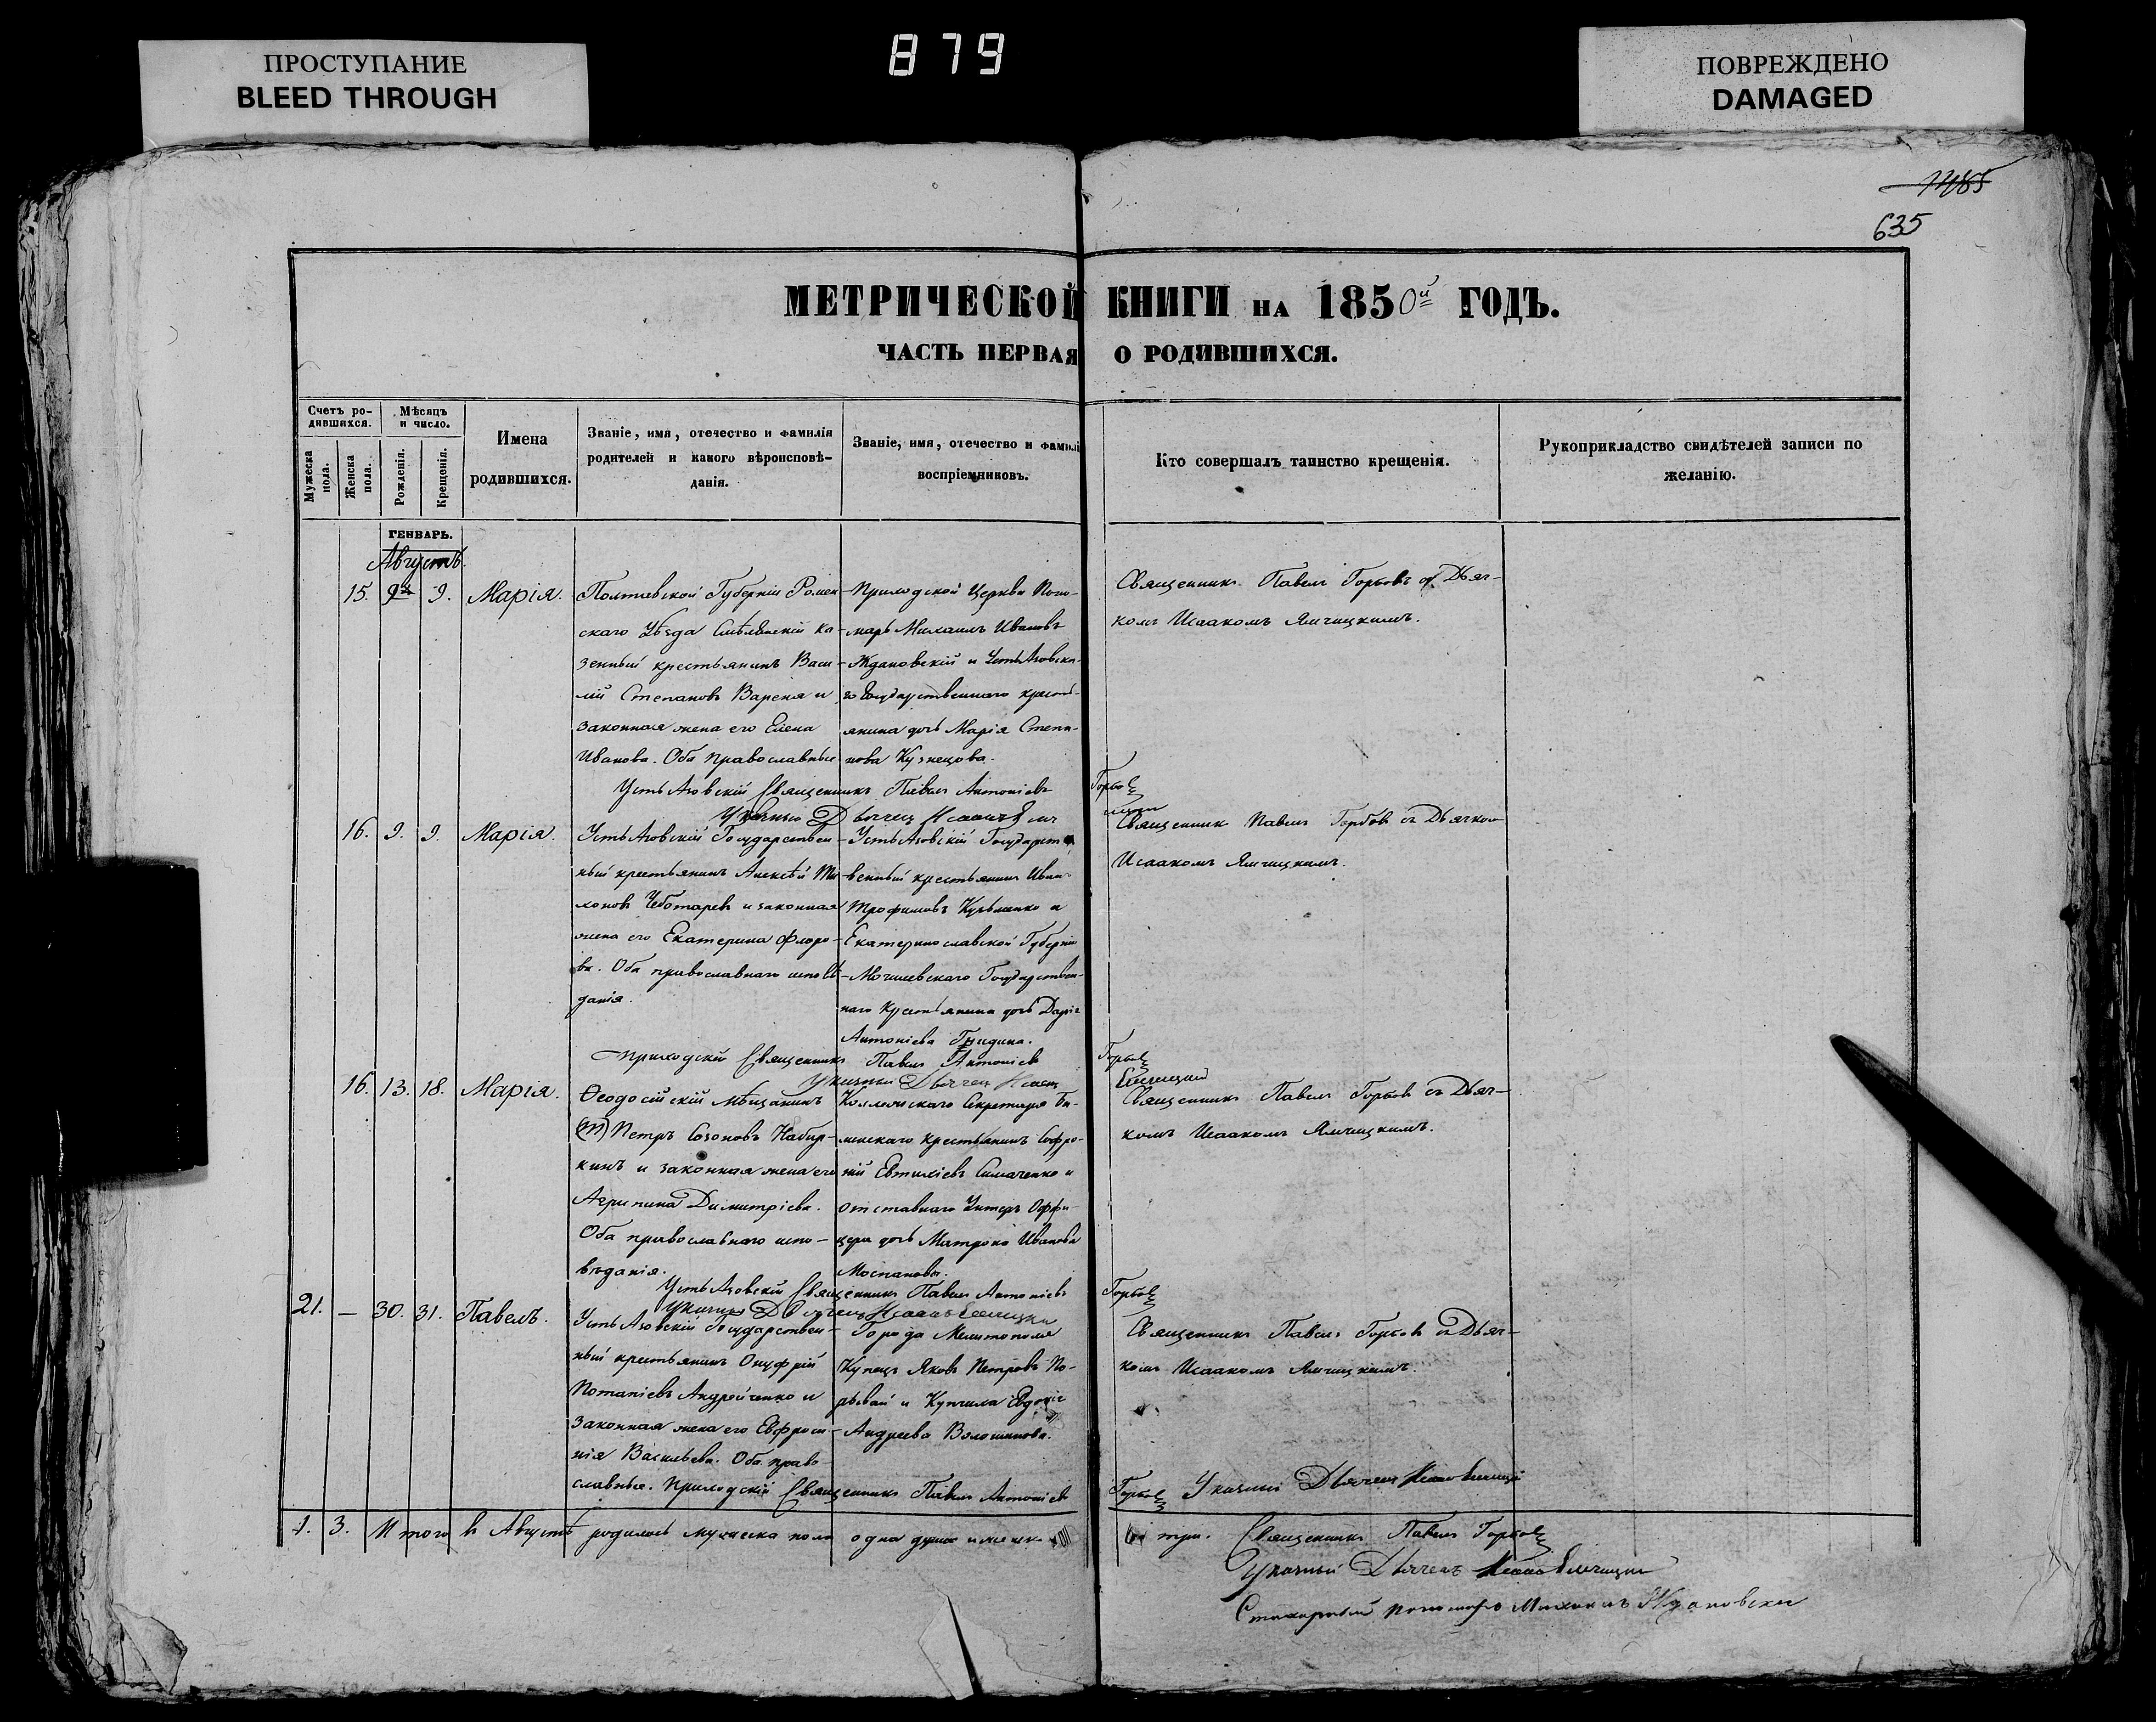 ПРОСТУПАНИЕ
BLEED THROUGH
879
ПОВРЕЖДЕНО
DAMAGED
635
МЕТРИЧЕСКОЙ КНИГИ НА 1850й ГОДЪ.
ЧАСТЬ ПЕРВАЯ О РОДИВШИХСЯ.
Счетъ ро-
дившихся.
Мужеска пола.
Женска пола.
Мѣсяцъ
и число.
Рожденія.
Крещенія.
Имена
родившихся.
Званіе, имя, отечество и фамилія
родителей и какого вѣроисповѣ-
данія.
Званіе, имя, отечество и фамилі
воспріемниковъ.
Кто совершалъ таинство крещенія.
Рукоприкладство свидѣтелей записи по
желанію.
ГЕНВАРЬ.
Августъ.
15. 9. Марія.
Полтавской Губерніи Ромен
скаго Уѣзда Смѣлянскій ка-
зенный крестьянинъ Васи-
лій Степановъ Вареня и
законная жена его Елена
Иванова. Оба православные
Приходской Церкви Поно-
марь Михаилъ Ивановъ
Ждановскій и УстьАзовска-
го Государственнаго кресть-
янина дочь Марія Степа-
нова Кузнецова.
Священникъ Павелъ Горбовъ съ Дьяч-
комъ Исаакомъ Ямчицкимъ.
УстьАзовскій Священникъ Павелъ Антоніевъ Горбов
16. 9. 9. Марія.
УстьАзовскій Государствен-
ный крестьянинъ Алексѣй Ти-
хоновъ Чеботаревъ и законная
жена его Екатерина Флоро-
ва. Оба православнаго исповѣ-
данія.
УстьАзовскій Государст
венный крестьянинъ Иван
Трофимовъ Кузьменко и
Екатеринославской Губерніи
Могилевскаго Государствен-
наго Крестьянина дочь Дарія
Антоніева Гридина.
Священникъ Павелъ Горбовъ съ Дьячком
Исаакомъ Ямчицкимъ.
Приходскій Священникъ Павелъ Антоніев Горбов
16. 13. 18. Марія.
Ѳеодосійскій мѣщанинъ
Петръ Созоновъ Набир-
кинъ и законная жена его
Агрипина Димитріева.
Оба православнаго испо-
вѣданія.
Коллежскаго Секретаря
крестьянинъ Софро-
ній Евтихіевъ Симаченко и
отставнаго Унтеръ Оффи-
цера дочь Матрона Иванова
Моспанова.
Священникъ Павелъ Горбовъ съ Дьяч-
комъ Исаакомъ Ямчицкимъ.
УстьАзовскій Священникъ Павелъ Антоніевъ Горбов
21. — 30. 31. Павелъ.
УстьАзовскій Государствен-
ный крестьянинъ Онуфрій
Потапіевъ Андрейченко и
законная жена его Евфроси-
нія Васильева. Оба право-
славные.
Города Мелитополя
Купецъ Яковъ Петровъ
и Купчиха Евдокія
Андреева Волошинова.
Священникъ Павелъ Горбовъ съ Дьяч-
комъ Исаакомъ Ямчицкимъ.
Приходскій Священникъ Павелъ Антоніев Горбов Указный Дьячекъ
1. 3. Итого въ Августѣ родилось мужеска пола одна душа и женск три. Священникъ Павелъ Горбов
Указный Дьячекъ Исаакъ Ямчицкій
пономарь Михаилъ Ждановскій